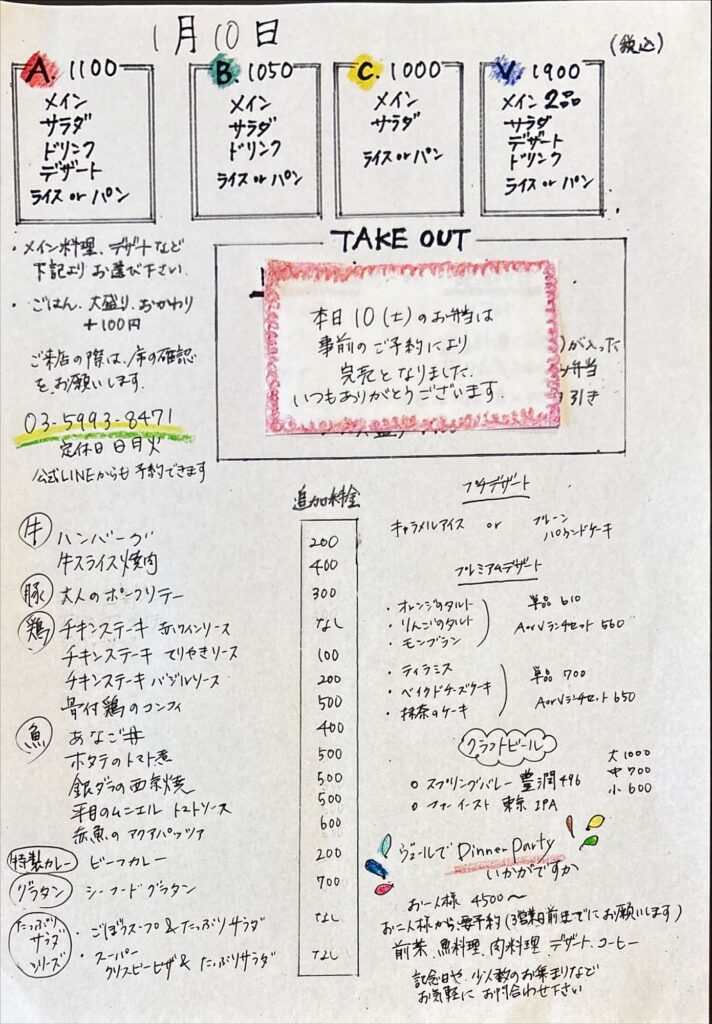 1月10日
(税込)
A. 1100
メイン
サラダ
ドリンク
デザート
ライス or パン
B. 1050
メイン
サラダ
ドリンク
ライス or パン
C. 1000
メイン
サラダ
ライス or パン
V. 1900
メイン 2品
サラダ
デザート
ドリンク
ライス or パン
・メイン料理、デザートなど
下記より お選び下さい.
・ごはん. 大盛り. おかわり
+100円
ご来店の際は、席の確認
をお願いします.
03-5993-8471
定休日 日月火
公式LINEからも 予約できます
TAKE OUT
本日 10 (土) のお弁当は
事前の ご予約により
完売となりました.
いつもありがとうございます.
)が入った
弁当
引き
追加料金
牛 ハンバーグ 200
牛スライス焼肉 400
豚 大人のポークソテー 300
鶏 チキンステーキ 赤ワインソース なし
チキンステーキ てりやきソース 100
チキンステーキ バジルソース 200
骨付鶏のコンフィ 500
魚 あなご丼 400
ホタテのトマト煮 500
銀ダラの西京焼 500
平目のムニエル トマトソース 500
赤魚の アクアパッツァ 600
特製カレー ビーフカレー 200
グラタン シーフードグラタン 700
たっぷりサラダシリーズ
・ごぼうスープ & たっぷりサラダ なし
・スーパー
クリスピーピザ & たっぷりサラダ なし
プチデザート
キャラメルアイス or プルーン
パウンドケーキ
プレミアムデザート
・オレンジのタルト
・りんごのタルト
・モンブラン
単品 610
AorVランチセット 560
・ティラミス
・ベイクドチーズケーキ
・抹茶のケーキ
単品 700
AorVランチセット 650
クラフトビール
○ スプリングバレー 豊潤496
○ ファーイースト 東京 IPA
大1000
中700
小600
ヴェールで Dinner Party
いかがですか
お一人様 4500〜
お二人様から、要予約(3営業日前までにお願いします)
前菜、魚料理、肉料理、デザート、コーヒー
記念日や、少人数のお集まりなど
お気軽に お問合わせ下さい